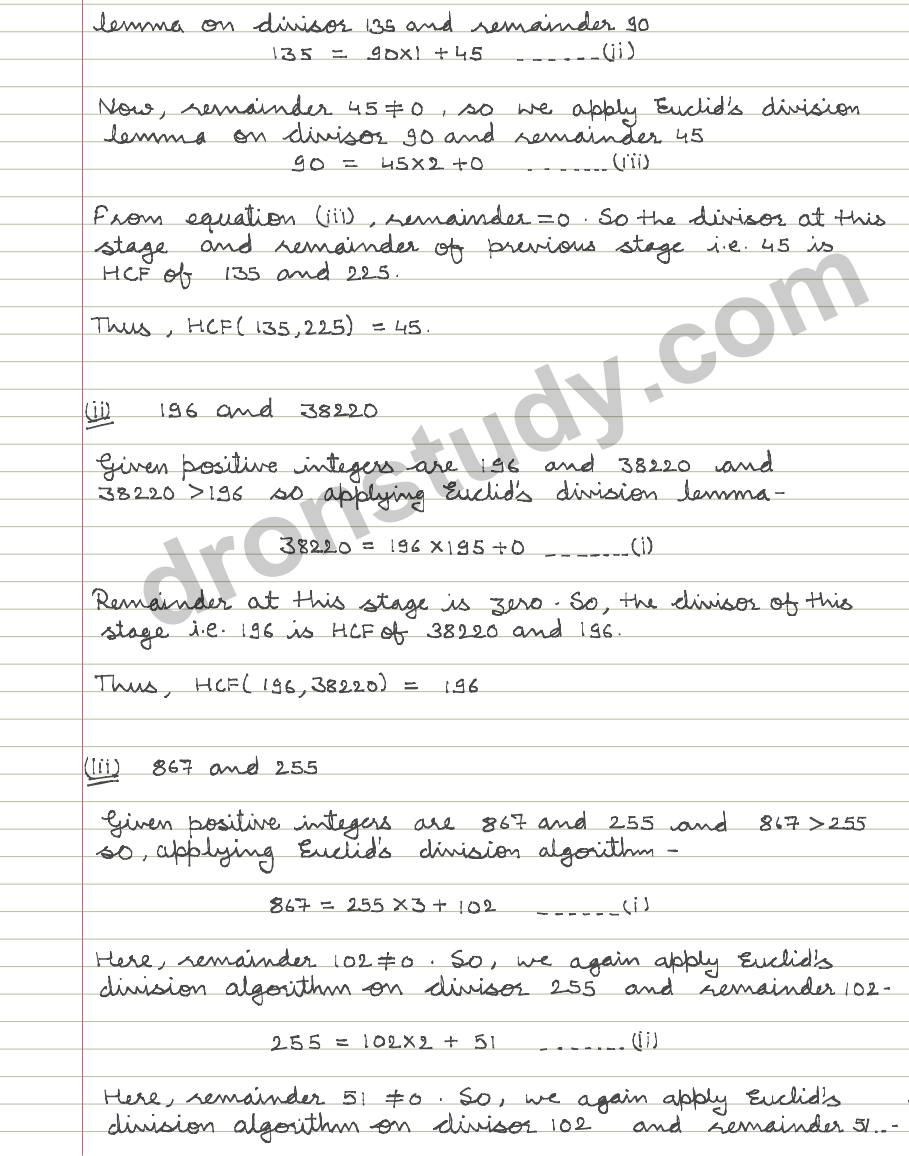 lemma on divisor 135 and remainder 90
135 = 90×1 + 45 ------(ii)
Now, remainder 45 ≠ 0, so we apply Euclid's division
lemma on divisor 90 and remainder 45
90 = 45×2 + 0 -------(iii)
From equation (iii), remainder = 0. So the divisor at this
stage and remainder of previous stage i.e. 45 is
HCF of 135 and 225.
Thus, HCF(135,225) = 45.
(ii) 196 and 38220
Given positive integers are 196 and 38220 and
38220 > 196 so applying Euclid's division lemma-
38220 = 196 × 195 + 0 -------(i)
Remainder at this stage is zero. So, the divisor of this
stage i.e. 196 is HCF of 38220 and 196.
Thus, HCF(196,38220) = 196
(iii) 867 and 255
Given positive integers are 867 and 255 and 867 > 255
so, applying Euclid's division algorithm -
867 = 255 × 3 + 102 ------(i)
Here, remainder 102 ≠ 0. So, we again apply Euclid's
division algorithm on divisor 255 and remainder 102-
255 = 102×2 + 51 -------(ii)
Here, remainder 51 ≠ 0. So, we again apply Euclid's
division algorithm on divisor 102 and remainder 51..-
dronstudy.com